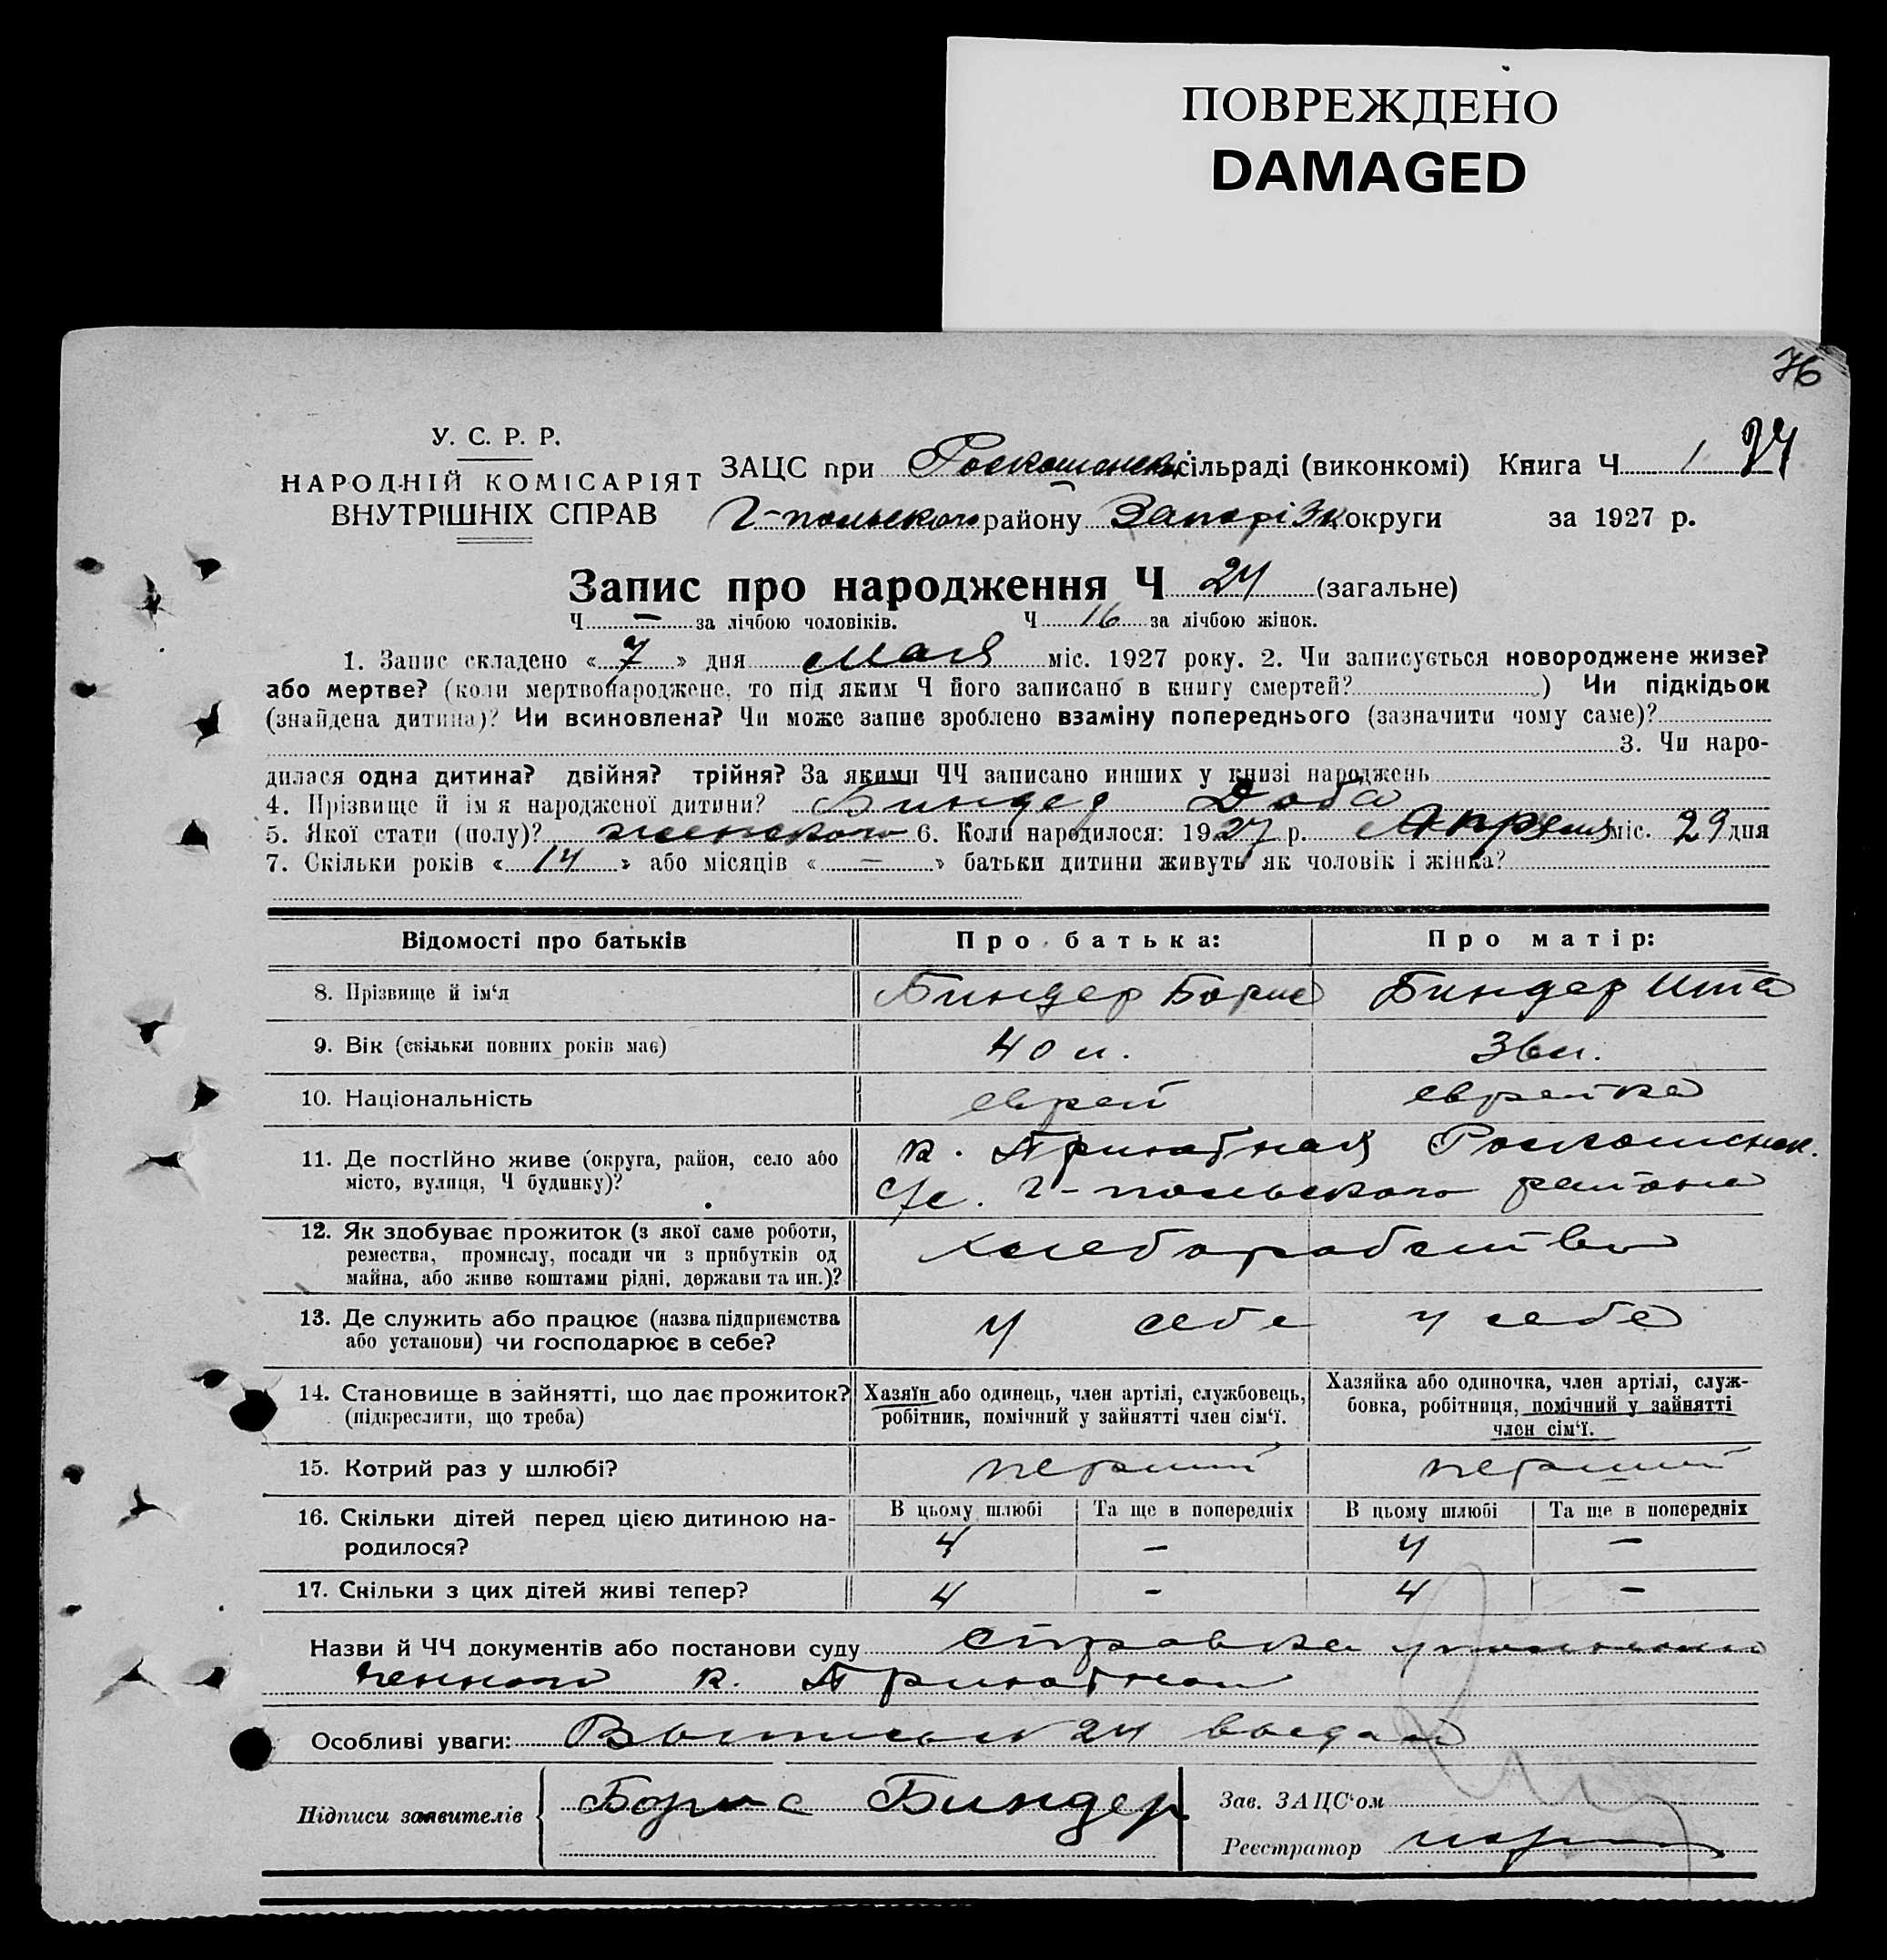 ПОВРЕЖДЕНО
DAMAGED
76
У. С. Р. Р.
НАРОДНІЙ КОМІСАРІЯТ
ВНУТРІШНІХ СПРАВ
ЗАЦС при Роскошанск. сільраді (виконкомі) Книга Ч 1
Г-польского району Запоріжс округи за 1927 р.
Запис про народження Ч 24 (загальне)
Ч — за лічбою чоловіків. Ч 16 за лічбою жінок.
1. Запис складено «7» дня Мая міс. 1927 року. 2. Чи записується новороджене живе?
або мертве? (коли мертвонароджене, то під яким Ч його записано в книгу смертей? ) Чи підкідьок
(знайдена дитина)? Чи всиновлена? Чи може запис зроблено взаміну попереднього (зазначити чому саме)?
3. Чи наро-
дилася одна дитина? двійня? трійня? За якими ЧЧ записано инших у книзі народжень
4. Прізвище й ім я народженої дитини? Биндер Доба
5. Якої стати (полу)? женского 6. Коли народилося: 1927 р. Апреля міс. 29 дня
7. Скільки років «14» або місяців «—» батьки дитини живуть як чоловік і жінка?
Відомості про батьків Про батька: Про матір:
8. Прізвище й ім‘я Биндер Борис Биндер Ита
9. Вік (скільки повних років має) 40 л. 36 л.
10. Національність еврей еврейка
11. Де постійно живе (округа, район, село або
місто, вулиця, Ч будинку)?
к. Приютная Роскошнск.
с/с. Г-польского района
12. Як здобуває прожиток (з якої саме роботи,
ремества, промислу, посади чи з прибутків од
майна, або живе коштами рідні, держави та ин.)?
хлеборобство
13. Де служить або працює (назва підприємства
або установи) чи господарює в себе?
у себе у себе
14. Становище в зайнятті, що дає прожиток?
(підкреслити, що треба)
Хазяїн або одинець, член артілі, службовець,
робітник, помічний у зайнятті член сім‘ї.
Хазяйка або одиночка, член артілі, служ-
бовка, робітниця, помічний у зайнятті
член сім‘ї.
15. Котрий раз у шлюбі? перший перший
16. Скільки дітей перед цією дитиною на-
родилося?
В цьому шлюбі Та ще в попередніх В цьому шлюбі Та ще в попередніх
4 — 4 —
17. Скільки з цих дітей живі тепер? 4 — 4 —
Назви й ЧЧ документів або постанови суду справка уполномо
ченного к. Приютной
Особливі уваги: Выпись 24 выдана
Підписи заявителів Борис Биндер
Зав. ЗАЦС‘ом
Реєстратор